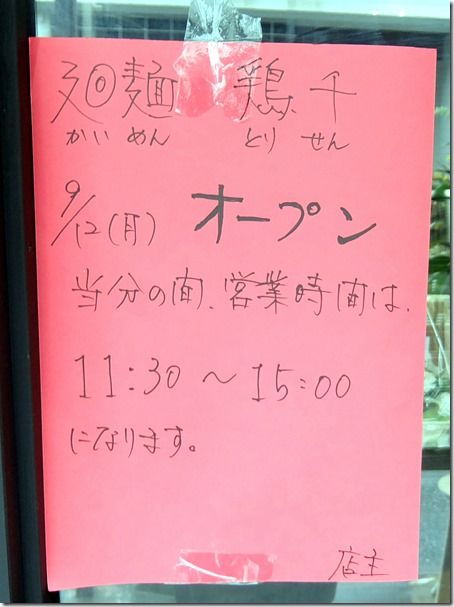 廻麺 鶏千
かいめん とりせん
9/12(月) オープン
当分の間、営業時間は、
11:30〜15:00
になります。
店主